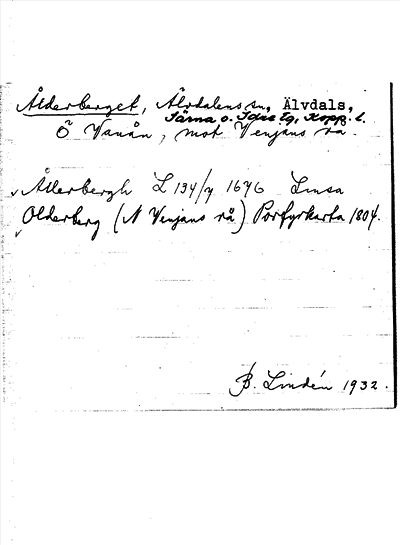 Ålderberget, Älvdalens sn, Älvdals,
Särna o. Idre tg, Kopp. l.
Ö Vanån, mot Venjans rå.
Ålderbergh L 134/7 1676 Linsa
Olderberg (N Venjans rå) Porfyrkarta 1804.
B. Lindén 1932.